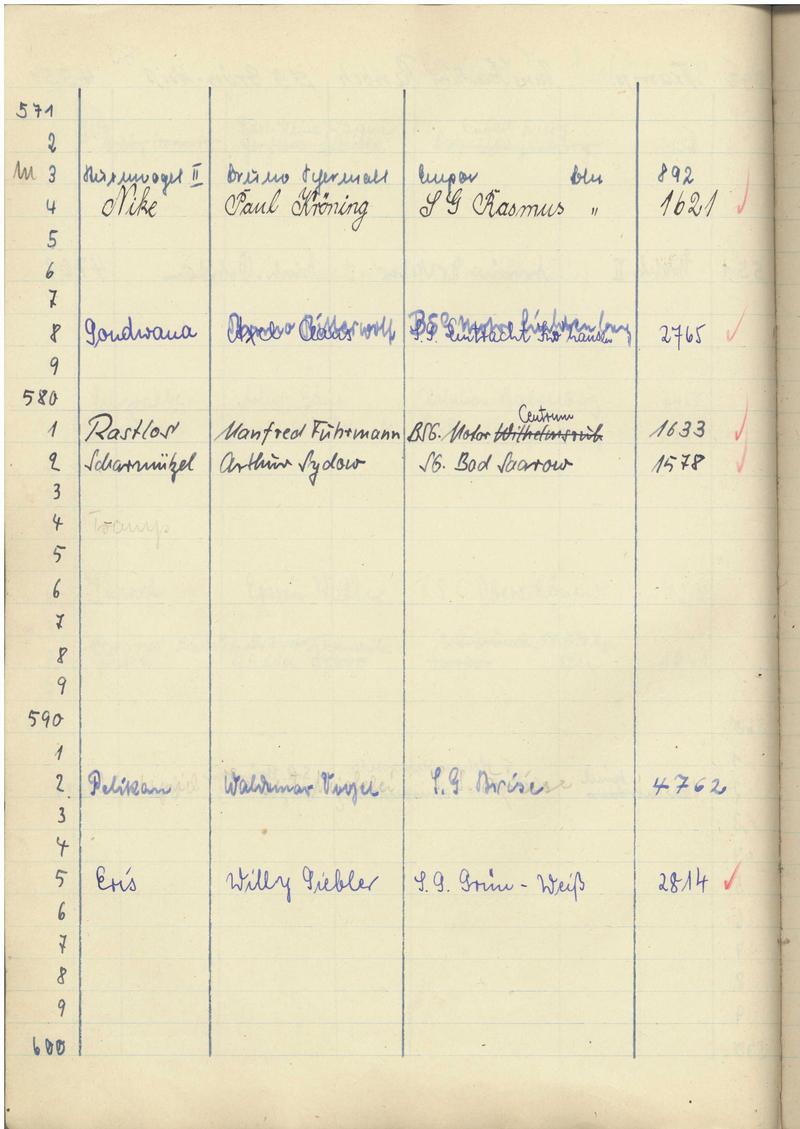 571
2
3 Sturmvogel II Bruno Empor Bln 892
4 Nike Paul Kröning S G Rasmus " 1621
5
6
7
8 Gondwana 2765
9
580
Centrum
1 Rastlos Manfred Fuhrmann BSG. Motor Wilhelmsruh 1633
2 Scharmützel Arthur Sydow SG. Bad Saarow 1578
3
4 Tramp
5
6
7
8
9
590
1
2 Pelikan Waldemar Vogel S.G Brise 4762
3
4
5 Eris Willy Siebler S.G. Grün-Weiß 2814
6
7
8
9
600